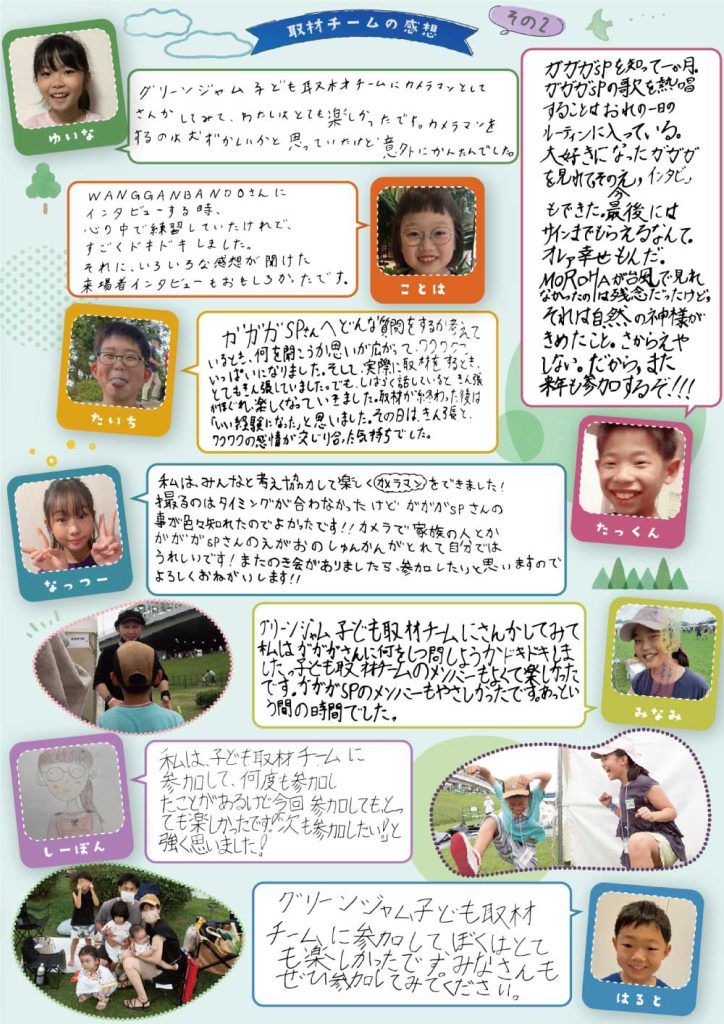 取材チームの感想
その2
グリーンジャム子ども取材チームにカメラマンとして
さんかしてみて、わたしはとても楽しかったです。カメラマンを
するのはむずかしいかと思っていたけど意外にかんたんでした。
ゆいな
ガガガSPを知って一か月。
ガガガSPの歌を熱唱
することはおれの一日の
ルーティンに入っている。
大好きになったガガガ
を見れて、そのえ，インタビュー
今
もできた。最後には
サインまでもらえるなんて。
オレァ幸せもんだ。
MOROHAが台風で見れ
なかったのは残念だったけど。
それは自然の神様が
きめたこと。さからえや
しない。だから、また
来年も参加するぞ!!!
たっくん
WANGGANBANDOさんに
インタビューする時、
心の中で練習していたけれど、
すごくドキドキしました。
それに、いろいろな感想が聞けた
来場者インタビューもおもしろかったです。
ことは
ガガガSPさんへどんな質問をするか考えて
いるとき、何を聞こうか思いが広がって、ワクワクで
いっぱいになりました。そして、実際に取材をするとき、
とてもきん張していました。でも、しばらく話していると きん張
がほぐれ、楽しくなっていきました。取材が終わった後は
「いい経験になった」と思いました。その日は、きん張と、
ワクワクの感情が交じり合った気持ちでした。
たいち
私は、みんなと考え協力して楽しくカメラマンをできました!
撮るのはタイミングが合わなかったけど ガガガSPさんの
事が色々知れたのでよかったです!! カメラで家族の人とか
ガガガSPさんのえがおのしゅんかんがとれて自分では
うれしいです! またのき会がありましたら、参加したいと思いますので
よろしくおねがいします!!
なっつー
グリーンジャム子ども取材チームにさんかしてみて
私はガガガさんに何をしつ問しようかドキドキしま
した。子ども取材チームのメンバーもよくて楽しかった
です。ガガガSPのメンバーもやさしかったです。あっとい
う間の時間でした。
みなみ
私は、子ども取材チームに
参加して、何度も参加し
たことがあるけど今回参加してもとっ
ても楽しかったです。「次も参加したい!」と
強く思いました!
しーぽん
グリーンジャム子ども取材
チームに参加して、ぼくはとて
も楽しかったです。みなさんも
ぜひ参加してみてください。
はると